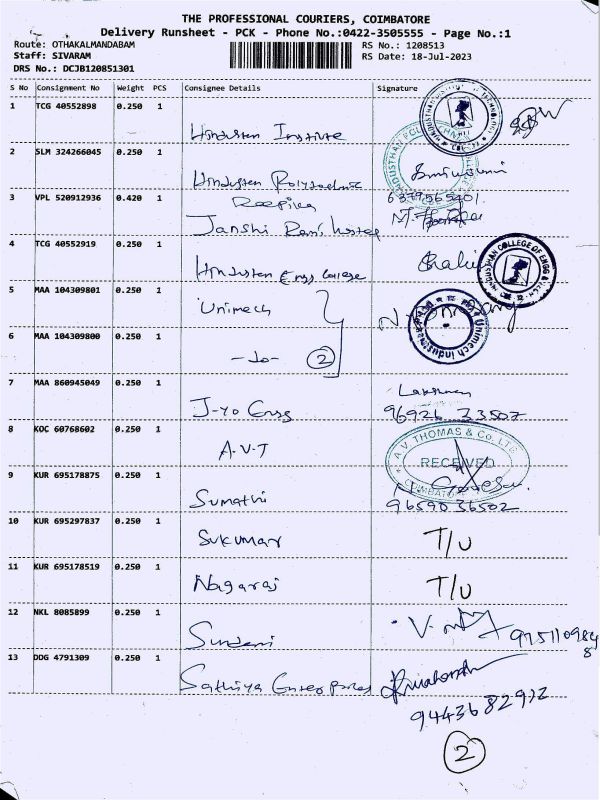 THE PROFESSIONAL COURIERS, COIMBATORE
Delivery Runsheet - PCK - Phone No.:0422-3505555 - Page No.:1
Route: OTHAKALMANDABAM
RS No.: 1208513
Staff: SIVARAM
RS Date: 18-Jul-2023
DRS No.: DCJB120851301
S No Consignment No Weight PCS Consignee Details Signature
1 TCG 40552898 0.250 1 Hindustan Institute
2 SLM 324266045 0.250 1 Hindustan Polytechnic
3 VPL 520912936 0.420 1 Deepika 6379565401
Janshi Rani hostel
4 TCG 40552919 0.250 1 Hindustan Engg College
HINDUSTHAN COLLEGE OF ENGG &
5 MAA 104309801 0.250 1 Unimech
Unimech Industries
6 MAA 104309800 0.250 1 -do- 2
7 MAA 860945049 0.250 1 J-yo Engg Lakshman
96926 33507
8 KOC 60768602 0.250 1 A.V.T
A.V. THOMAS & Co. LTD.
RECEIVED
COIMBATORE
9 KUR 695178875 0.250 1 Sumathi
9659036502
10 KUR 695297837 0.250 1 Sukumar T/U
11 KUR 695178519 0.250 1 Nagaraj T/U
12 NKL 8085899 0.250 1
13 DDG 4791309 0.250 1 Sathiya Enterprises
2